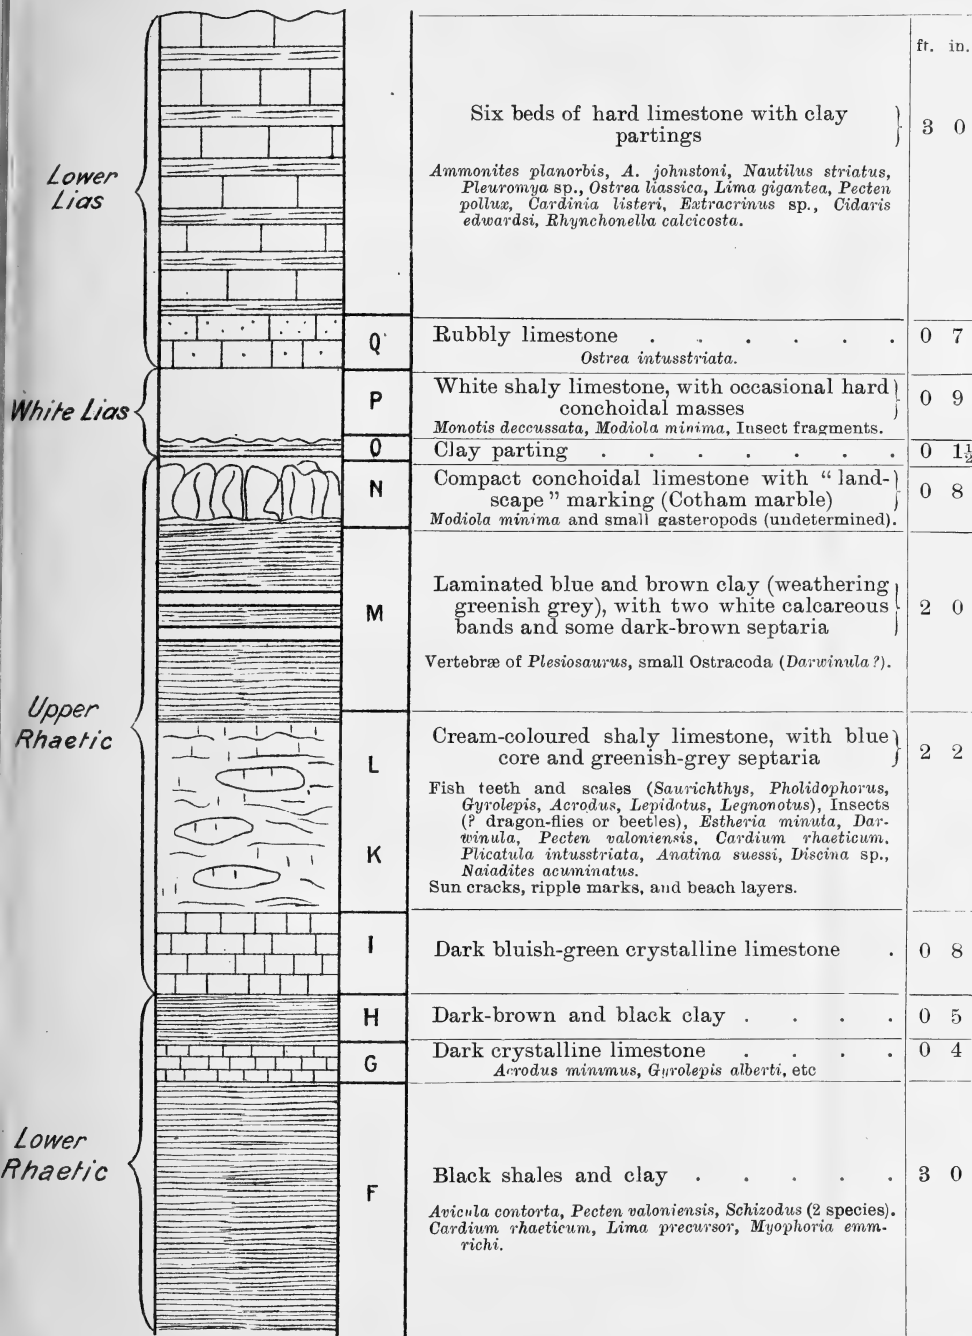 ft. in.
Lower
Lias
Six beds of hard limestone with clay
partings } 3 0
Ammonites planorbis, A. johnstoni, Nautilus striatus,
Pleuromya sp., Ostrea liassica, Lima gigantea, Pecten
pollux, Cardinia listeri, Extracrinus sp., Cidaris
edwardsi, Rhynchonella calcicosta.
Q Rubbly limestone . . . . . . 0 7
Ostrea intusstriata.
White Lias
P White shaly limestone, with occasional hard
conchoidal masses } 0 9
Monotis deccussata, Modiola minima, Insect fragments.
O Clay parting . . . . . . . 0 1½
Upper
Rhaetic
N Compact conchoidal limestone with "land-
scape" marking (Cotham marble) } 0 8
Modiola minima and small gasteropods (undetermined).
M Laminated blue and brown clay (weathering
greenish grey), with two white calcareous
bands and some dark-brown septaria } 2 0
Vertebræ of Plesiosaurus, small Ostracoda (Darwinula?).
L Cream-coloured shaly limestone, with blue
core and greenish-grey septaria } 2 2
Fish teeth and scales (Saurichthys, Pholidophorus,
Gyrolepis, Acrodus, Lepidotus, Legnonotus), Insects
(? dragon-flies or beetles), Estheria minuta, Dar-
winula, Pecten valoniensis, Cardium rhaeticum,
K Plicatula intusstriata, Anatina suessi, Discina sp.,
Naiadites acuminatus.
Sun cracks, ripple marks, and beach layers.
I Dark bluish-green crystalline limestone . 0 8
Lower
Rhaetic
H Dark-brown and black clay . . . . 0 5
G Dark crystalline limestone . . . . 0 4
Acrodus minimus, Gyrolepis alberti, etc
F Black shales and clay . . . . . 3 0
Avicula contorta, Pecten valoniensis, Schizodus (2 species).
Cardium rhaeticum, Lima precursor, Myophoria emm-
richi.